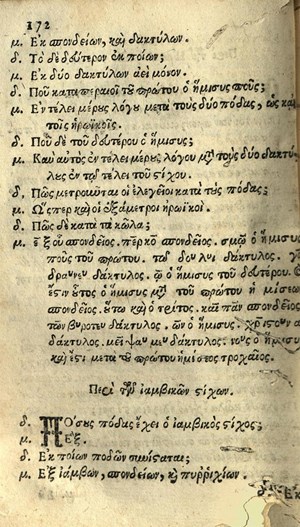 172
μ. Ἐκ σπονδείων, καὶ δακτύλων.
δ. Τὸ δὲ δεύτερον ἐκ ποίων;
μ. Ἐκ δύο δακτύλων ἀεὶ μόνον.
δ. Ποῦ καταπεραιοῖ τοῦ πρώτου ὁ ἥμισυς ποῦς;
μ. Ἐν τέλει μέρους λόγου μετὰ τοὺς δύο πόδας, ὡς καὶ
τοῖς ἡρωϊκοῖς.
δ. Ποῦ δὲ τοῦ δευτέρου ὁ ἥμισυς;
μ. Καὶ αὐτὸς ἐν τέλει μέρους λόγου μετὰ τοὺς δύο δακτύ-
λους ἐν τῷ τέλει τοῦ στίχου.
δ. Πῶς μετροῦνται οἱ ἐλεγεῖοι κατὰ τοὺς πόδας;
μ. Ὥσπερ καὶ οἱ ἑξάμετροι ἡρωϊκοί.
δ. Πῶς δὲ κατὰ τὰ κῶλα;
μ. ἐξ οὗ σπονδεῖος. σπονδεῖος. ὁ ἥμισυς
ποῦς τοῦ πρώτου. δάκτυλος.
δάκτυλος. ὁ ἥμισυς τοῦ δευτέρου.
ἔστιν οὗτος ὁ ἥμισυς μετὰ τοῦ πρώτου ἡμίσεως
σπονδεῖος. οὕτω καὶ ὁ τρίτος. σπονδεῖος
δάκτυλος. ὁ ἥμισυς.
δάκτυλος. δάκτυλος. ὁ ἥμισυς
καὶ ἔστι μετὰ τοῦ πρώτου ἡμίσεος τροχαῖος.
Περὶ τῶν ἰαμβικῶν στίχων.
δ. Πόσους πόδας ἔχει ὁ ἰαμβικὸς στίχος;
μ. Ἕξ.
δ. Ἐκ ποίων ποδῶν συνίσταται;
μ. Ἐξ ἰάμβων, σπονδείων, καὶ πυρριχίων.
δ. Ἐκ